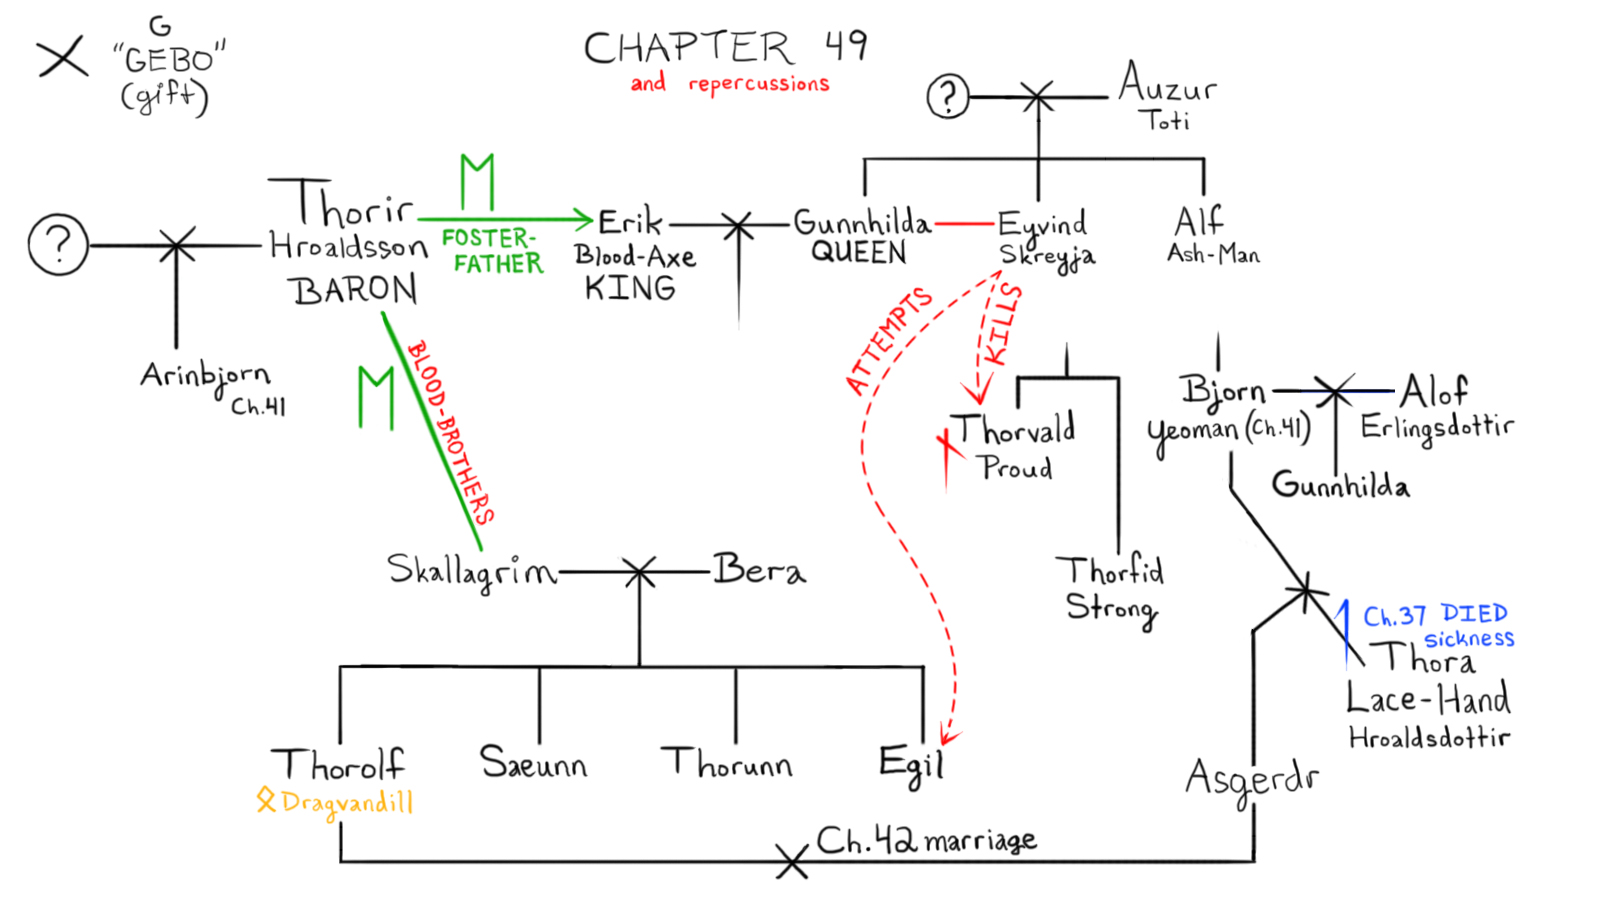 G
"GEBO"
(gift)
CHAPTER 49
and repercussions
?
Auzur
Toti
Thorir
Hroaldsson
BARON
FOSTER-
FATHER
Erik
Blood-Axe
KING
Gunnhilda
QUEEN
Eyvind
Skreyja
Alf
Ash-Man
?
Arinbjorn
Ch.41
BLOOD-BROTHERS
ATTEMPTS
KILLS
Thorvald
Proud
Bjorn
yeoman (Ch.41)
Alof
Erlingsdottir
Gunnhilda
Skallagrim
Bera
Thorfid
Strong
Ch.37 DIED
sickness
Thora
Lace-Hand
Hroaldsdottir
Thorolf
Dragvandill
Saeunn
Thorunn
Egil
Asgerdr
Ch.42 marriage